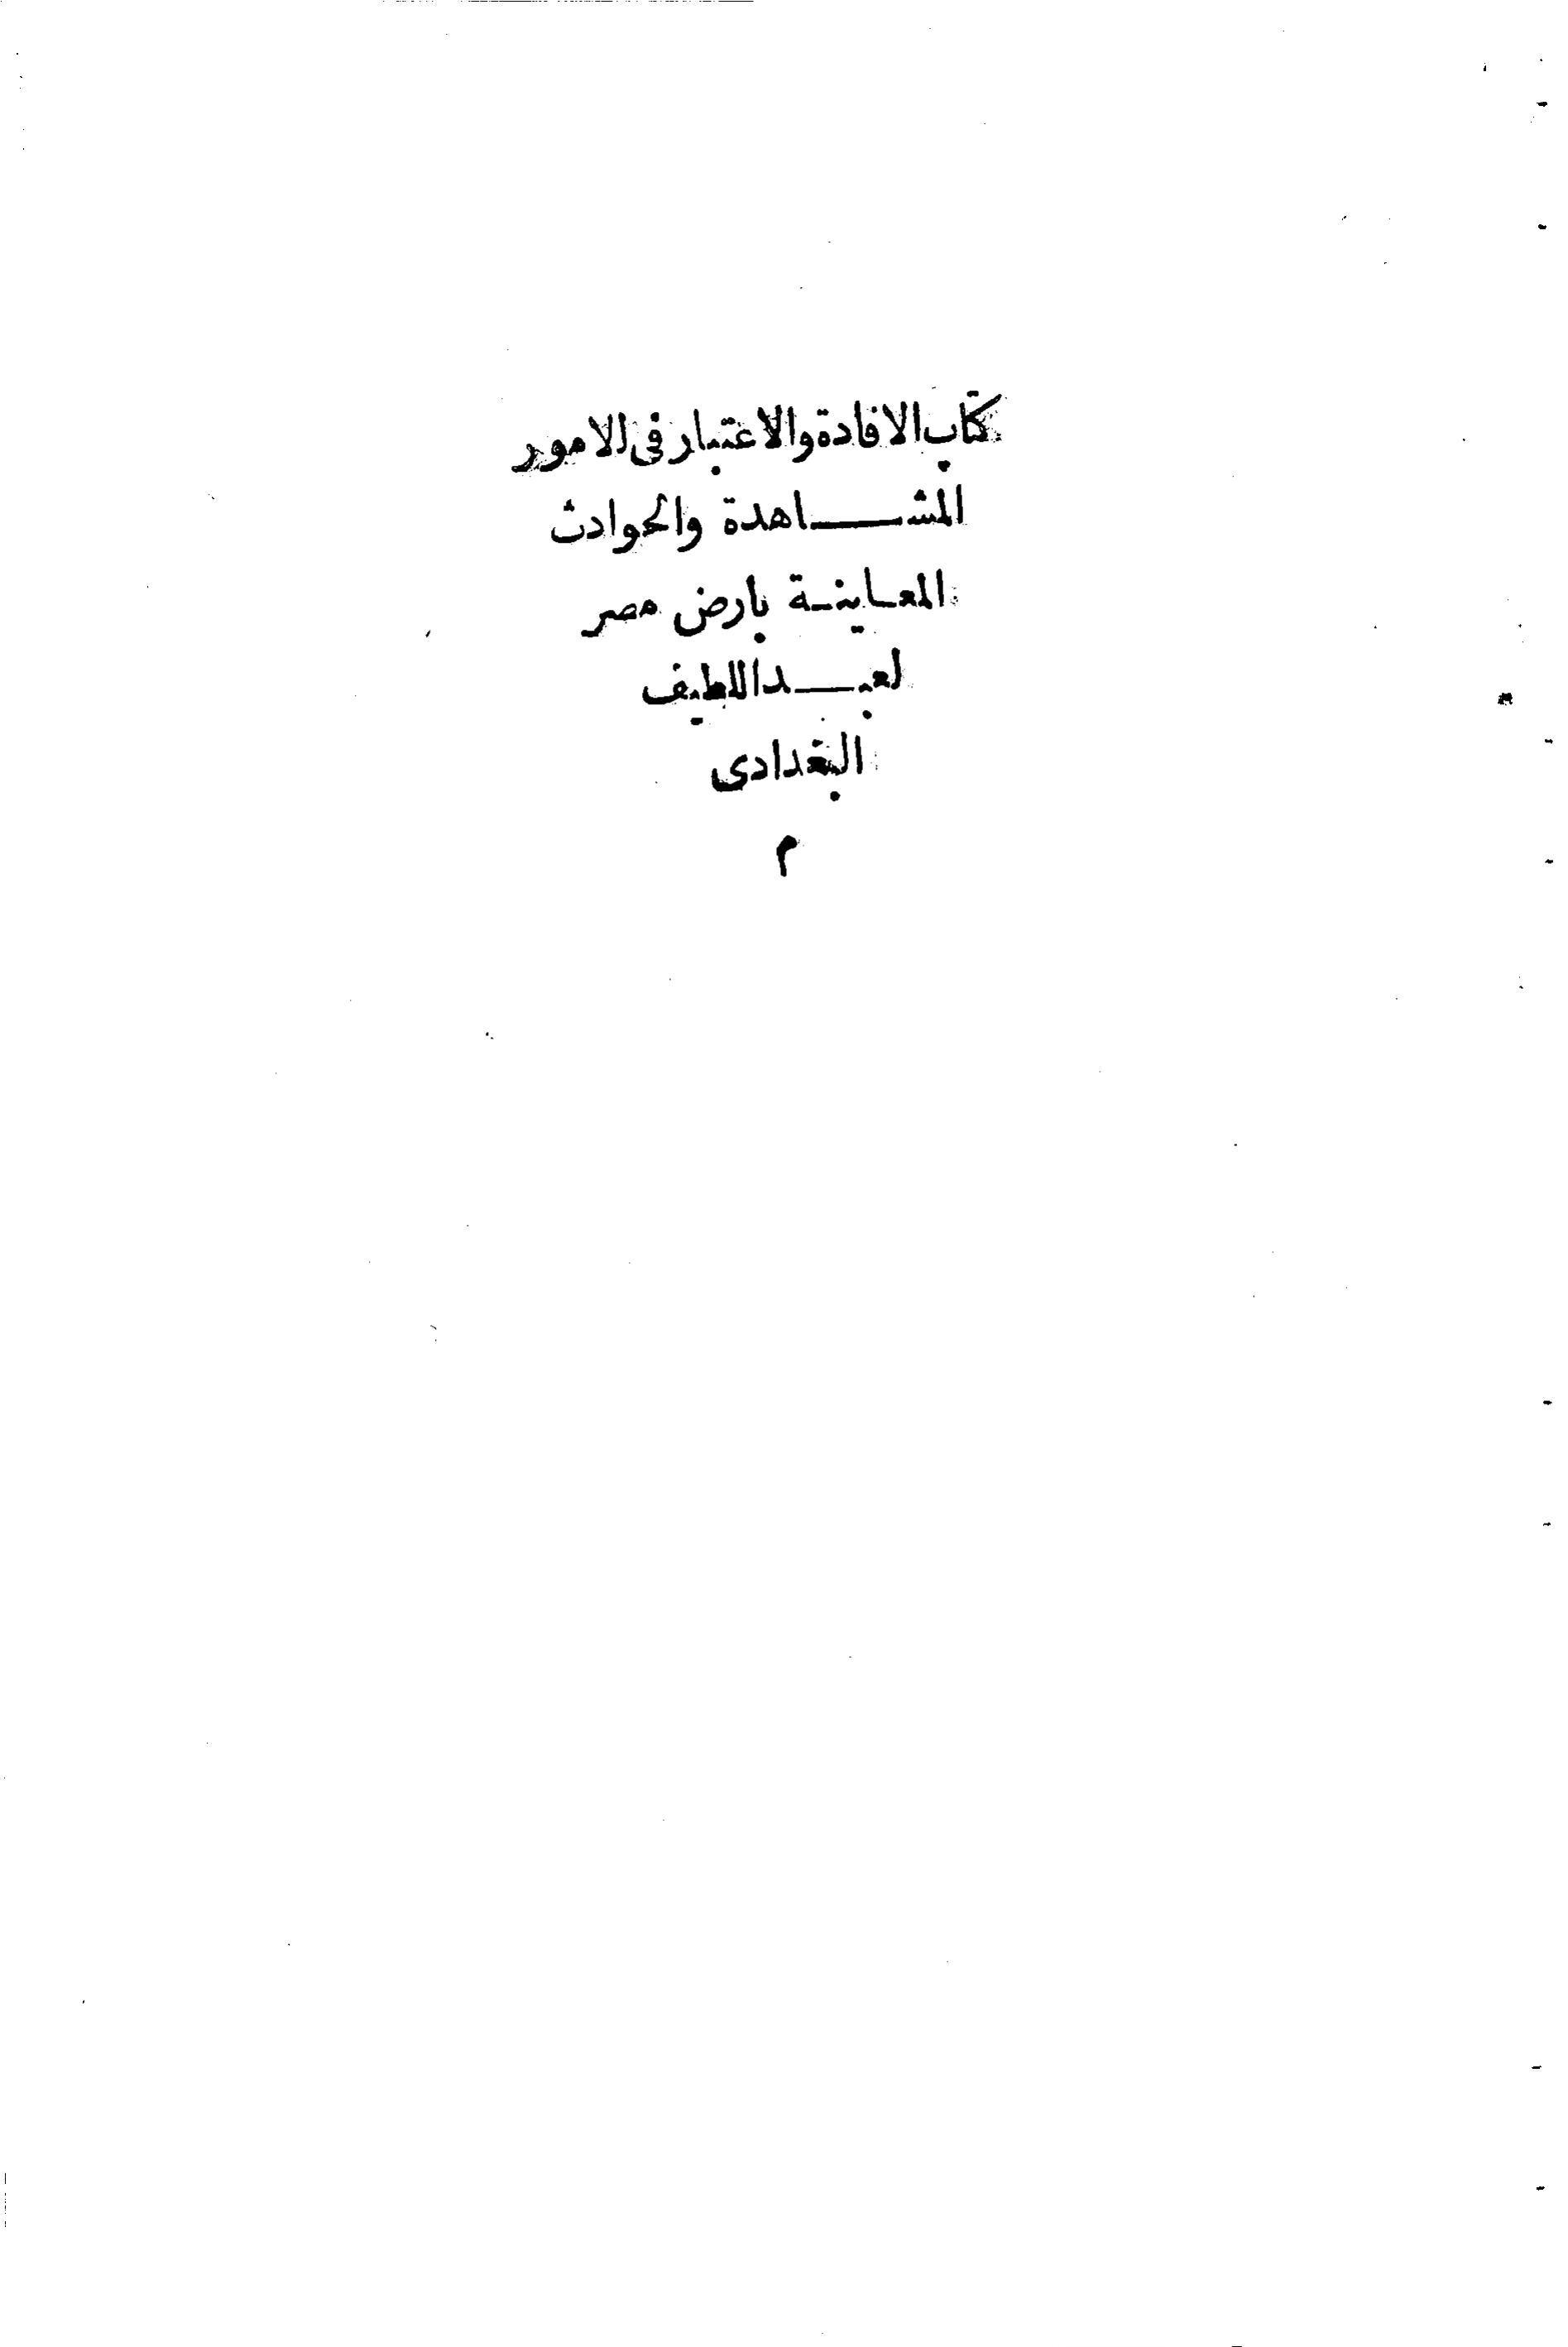 كتاب الافادة والاعتبار فى الامور
المشـــــاهدة والحوادث
المعـاينـة بارض مصر
لعبـــداللطيف
البغدادى
م